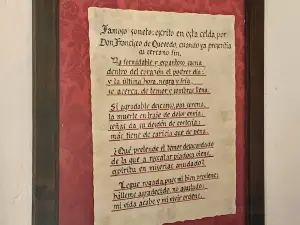 Famoso soneto escrito en esta celda, por
Don Francisco de Quevedo, cuando ya presentía
su cercano fin.
Ya formidable y espantoso suena
dentro del corazón el postrer día;
y la última hora, negra y fría,
se acerca, de temor y sombras llena.
Si agradable descanso, paz serena,
la muerte en traje de dolor envía,
señas da su desdén de cortesía;
más tiene de caricia que de pena.
¿Qué pretende el temor desacordado
de la que a rescatar piadosa viene
espíritu en miserias anudado?
Llegue rogada, pues mi bien previene;
hálleme agradecido, no asustado;
mi vida acabe y mi vivir ordene.